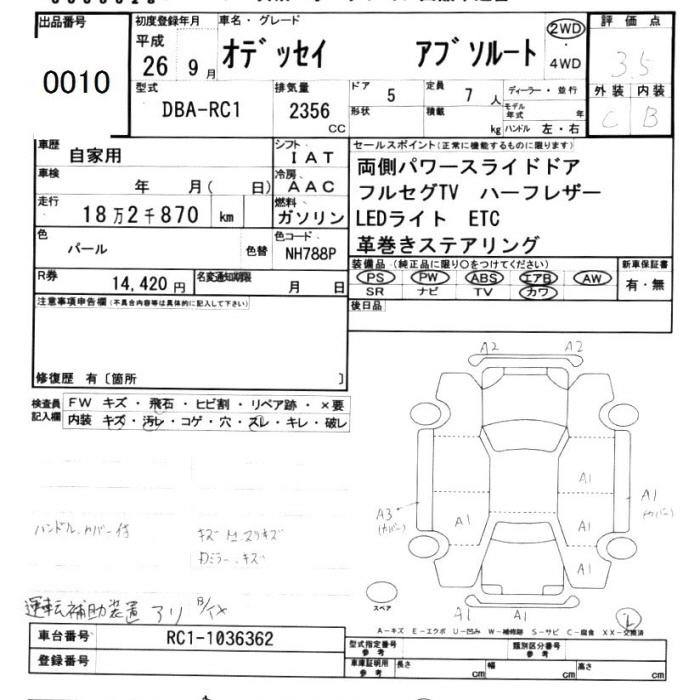 出品番号
0010
初度登録年月
平成
26 9月
車名・グレード
オデッセイ アブソルート
2WD
4WD
評価点
3.5
外装 内装
C B
型式
DBA-RC1
排気量
2356
CC
ドア 5
形状
定員 7人
積載 kg
ディーラー・並行
モデル年式 年
ハンドル 左・右
車歴
自家用
車検
年 月( 日)
走行
18万2千870 km
シフト
IAT
冷房
AAC
燃料
ガソリン
色
パール 色替
色コード
NH788P
R券
14,420円
名変通知期限
月 日
セールスポイント(正常に機能するものに限ります)
両側パワースライドドア
フルセグTV ハーフレザー
LEDライト ETC
革巻きステアリング
装備品(純正品に限り○をつけてください)
PS PW ABS エアB AW
SR ナビ TV カワ
新車保証書
有・無
後日品
注意事項申告欄(不具合内容等は具体的に記入して下さい)
修復歴 有〔箇所 〕
検査員記入欄
FW キズ・飛石・ヒビ割・リペア跡・×要
内装 キズ・汚レ・コゲ・穴・スレ・キレ・破レ
A2 A2
A1
A1
A1
A1
A1
A1 A1
A3
(カバー)
A1
(カバー)
ハンドル、カバー付
運転補助装置 アリ
スペア
A－キズ E－エクボ U－凹み W－補修跡 S－サビ C－腐食 XX－交換済
車台番号
RC1-1036362
登録番号
型式指定番号
参考
類別区分番号
参考
車庫証明用
参考
長さ cm
幅 cm
高さ cm